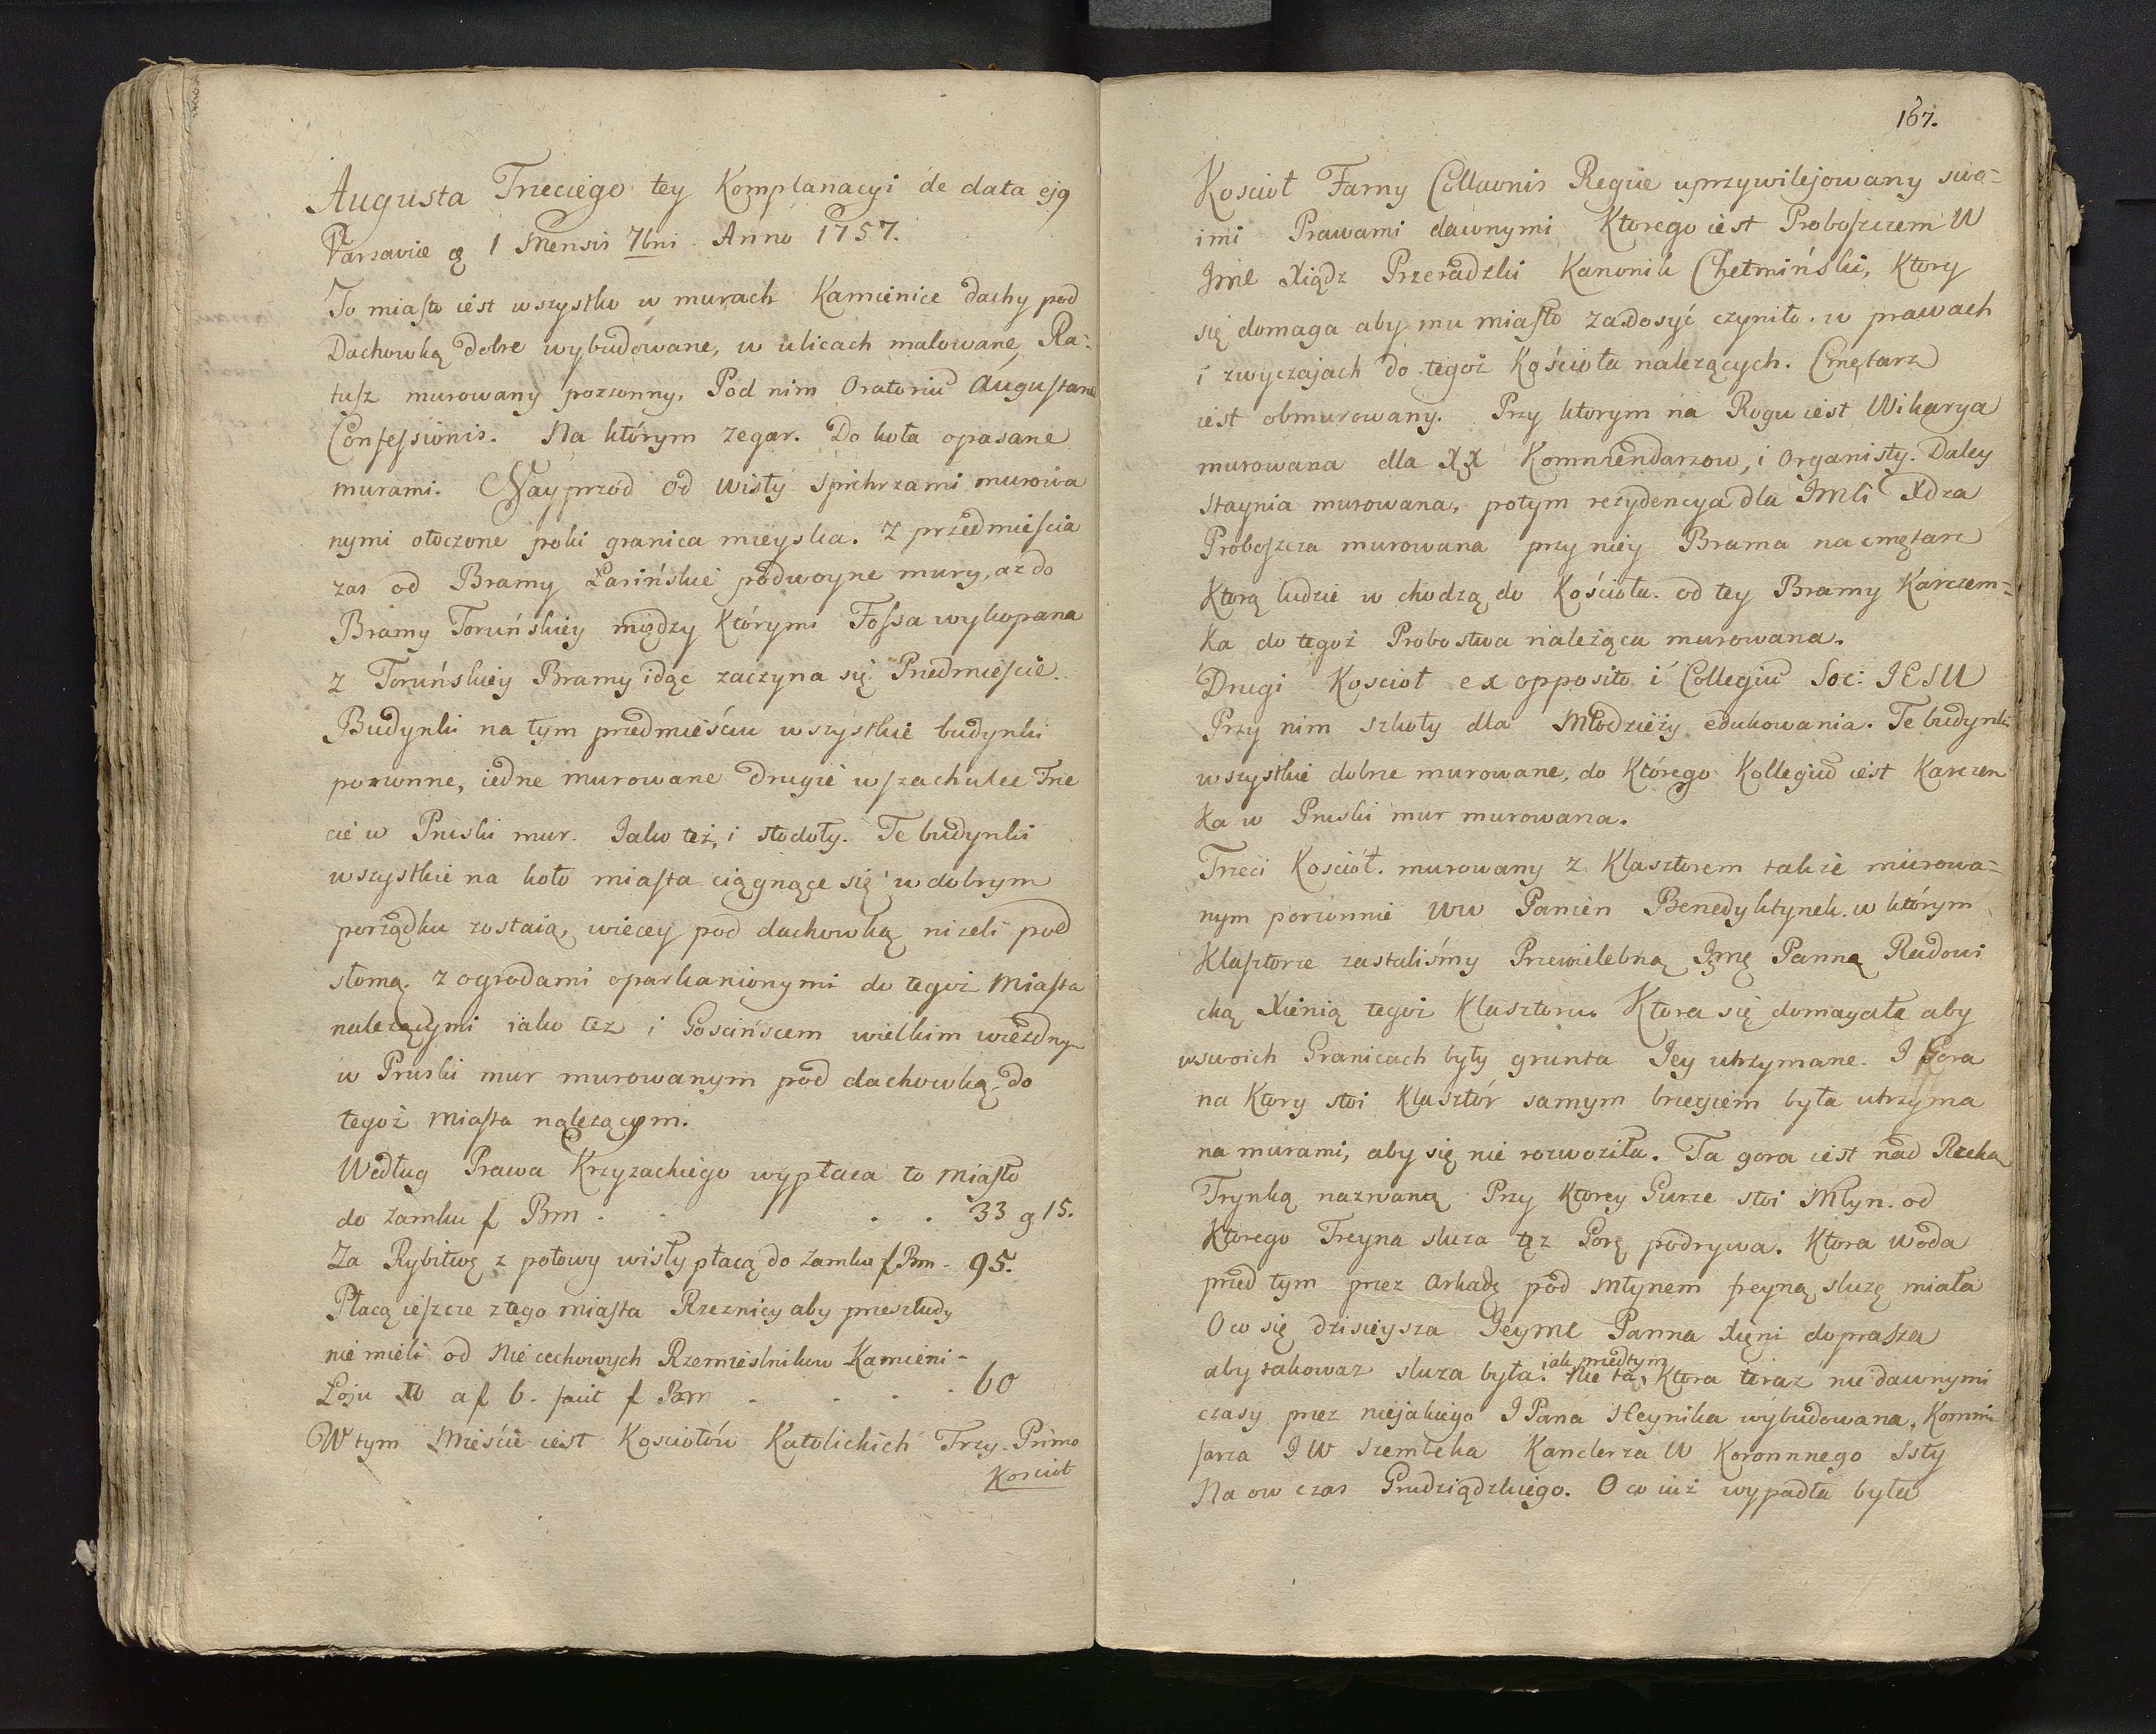 Augusta Trzeciego tey Komplanacyi de data ejq
Varsavie q 1 Mensis 7bni Anno 1757.
To miasto iest wszystko w murach Kamienice dachy pod
Dachowką dobre wybudowane, w ulicach malowane, Ra-
tusz murowany porzonny, Pod nim Oratoriu Augustane
Confessionis. Na którym zegar. Do koła opasane
murami. Nayprzód od wisły Spichrzami murowa
nymi otoczone poki granica mieyska. Z przedmiescia
zas od Bramy Łasińskiė podwoyne mury, aż do
Bramy Toruńskiey między Którymi Fossa wykopana
z Toruńskiey Bramy idąc zaczyna się Przedmieście.
Budynki na tym przedmieściu wszystkie budynki
porzonne, iedne murowane drugie w szachulec Trze
cie w Pruski mur. Jako też, i stodoły. Te budynki
wszystkie na koło miasta ciągnące się w dobrym
porządku zostaią, więcey pod dachowką niżeli pod
słomą. z ogrodami oparkanionymi do tegoż Miasta
należącymi iako też i Gościńcem wielkim wiezdny
w Pruski mur murowanym pod dachowką do
tegoż Miasta nalężącym.
Według Prawa Krzyzackiego wypłaca to Miasto
do zamku f Prn . . . . 33 g 15.
Za Rybitwę z połowy wisły płacą do zamku f Prn - 95.
Płacą ieszcze z tego miasta Rzeznicy aby przeszkody
nie mieli od Nie cechowych Rzemieslnikow Kamieni-
Łoju 10 a f 6. facit f Prn . . . . 60
W tym Mieście iest Kosciołów Katolickich Trzy. Primo
Kosciół
167.
Kosciół Farny Collaonis Regiæ uprzywilejowany swo-
imi Prawami dawnymi Ktorego iest Proboszczem W
Jmć Xiądz Przeradzki Kanonik Chełmiński, Ktory
się domaga aby mu miasto zadosyć czyniło w prawach
i zwyczajach do tegoż Kościoła nalezących. Cmętarz
iest obmurowany. Przy ktorym na Rogu iest Wikarya
murowana dla XX Kommendarzow, i Organisty. Daley
staynia murowana, potym rezydencya dla JMci Xdza
Proboszcza murowana przy niey Brama na cmętarz
Ktorą ludzie w chodzą do Kościoła. od tey Bramy Karczem-
Ka do tegoż Probostwa należąca murowana.
Drugi Kosciół ex opposito i Collegiu Soc: IESU
Przy nim szkoły dla Młodzieży edukowania. Te budynki
wszystkie dobrze murowane, do Którego Kollegiu iest Karczem
Ka w Pruski mur murowana.
Trzeci Kosciół. murowany z Klasztorem także murowa-
nym porzonnie WW Panien Benedyktynek. w którym
Klasztorze zastaliśmy Przewielebną Jmę Panną Rudowi
cką Xienią tegoż Klasztoru. Ktora się domagała aby
w swoich Granicach były grunta Jey utrzymane. I Gora
na Ktory stoi Klasztór samym brzegiem była utrzyma
na murami, aby się nie rozwoziła. Ta gora iest nad Rzeką
Trynką nazwaną Przy Ktorey Gurze stoi Młyn. od
Ktorego Freyna sluza też Gorę podrywa. Ktora woda
przed tym przez Arkadę pod młynem freyną sluzę miała
O co się dzisieysza Jeymc Panna Xięni doprasza
aby takowaz sluza była. iak przedtym Nie ta, Ktora teraz nie dawnymi
czasy przez niejakiego JPana Heynika wybudowana, Kommi
sarza JW Szembeka Kanclerza W Koronnnego Ssty
Na ow czas Grudziądzkiego. O co iuż wypadła była